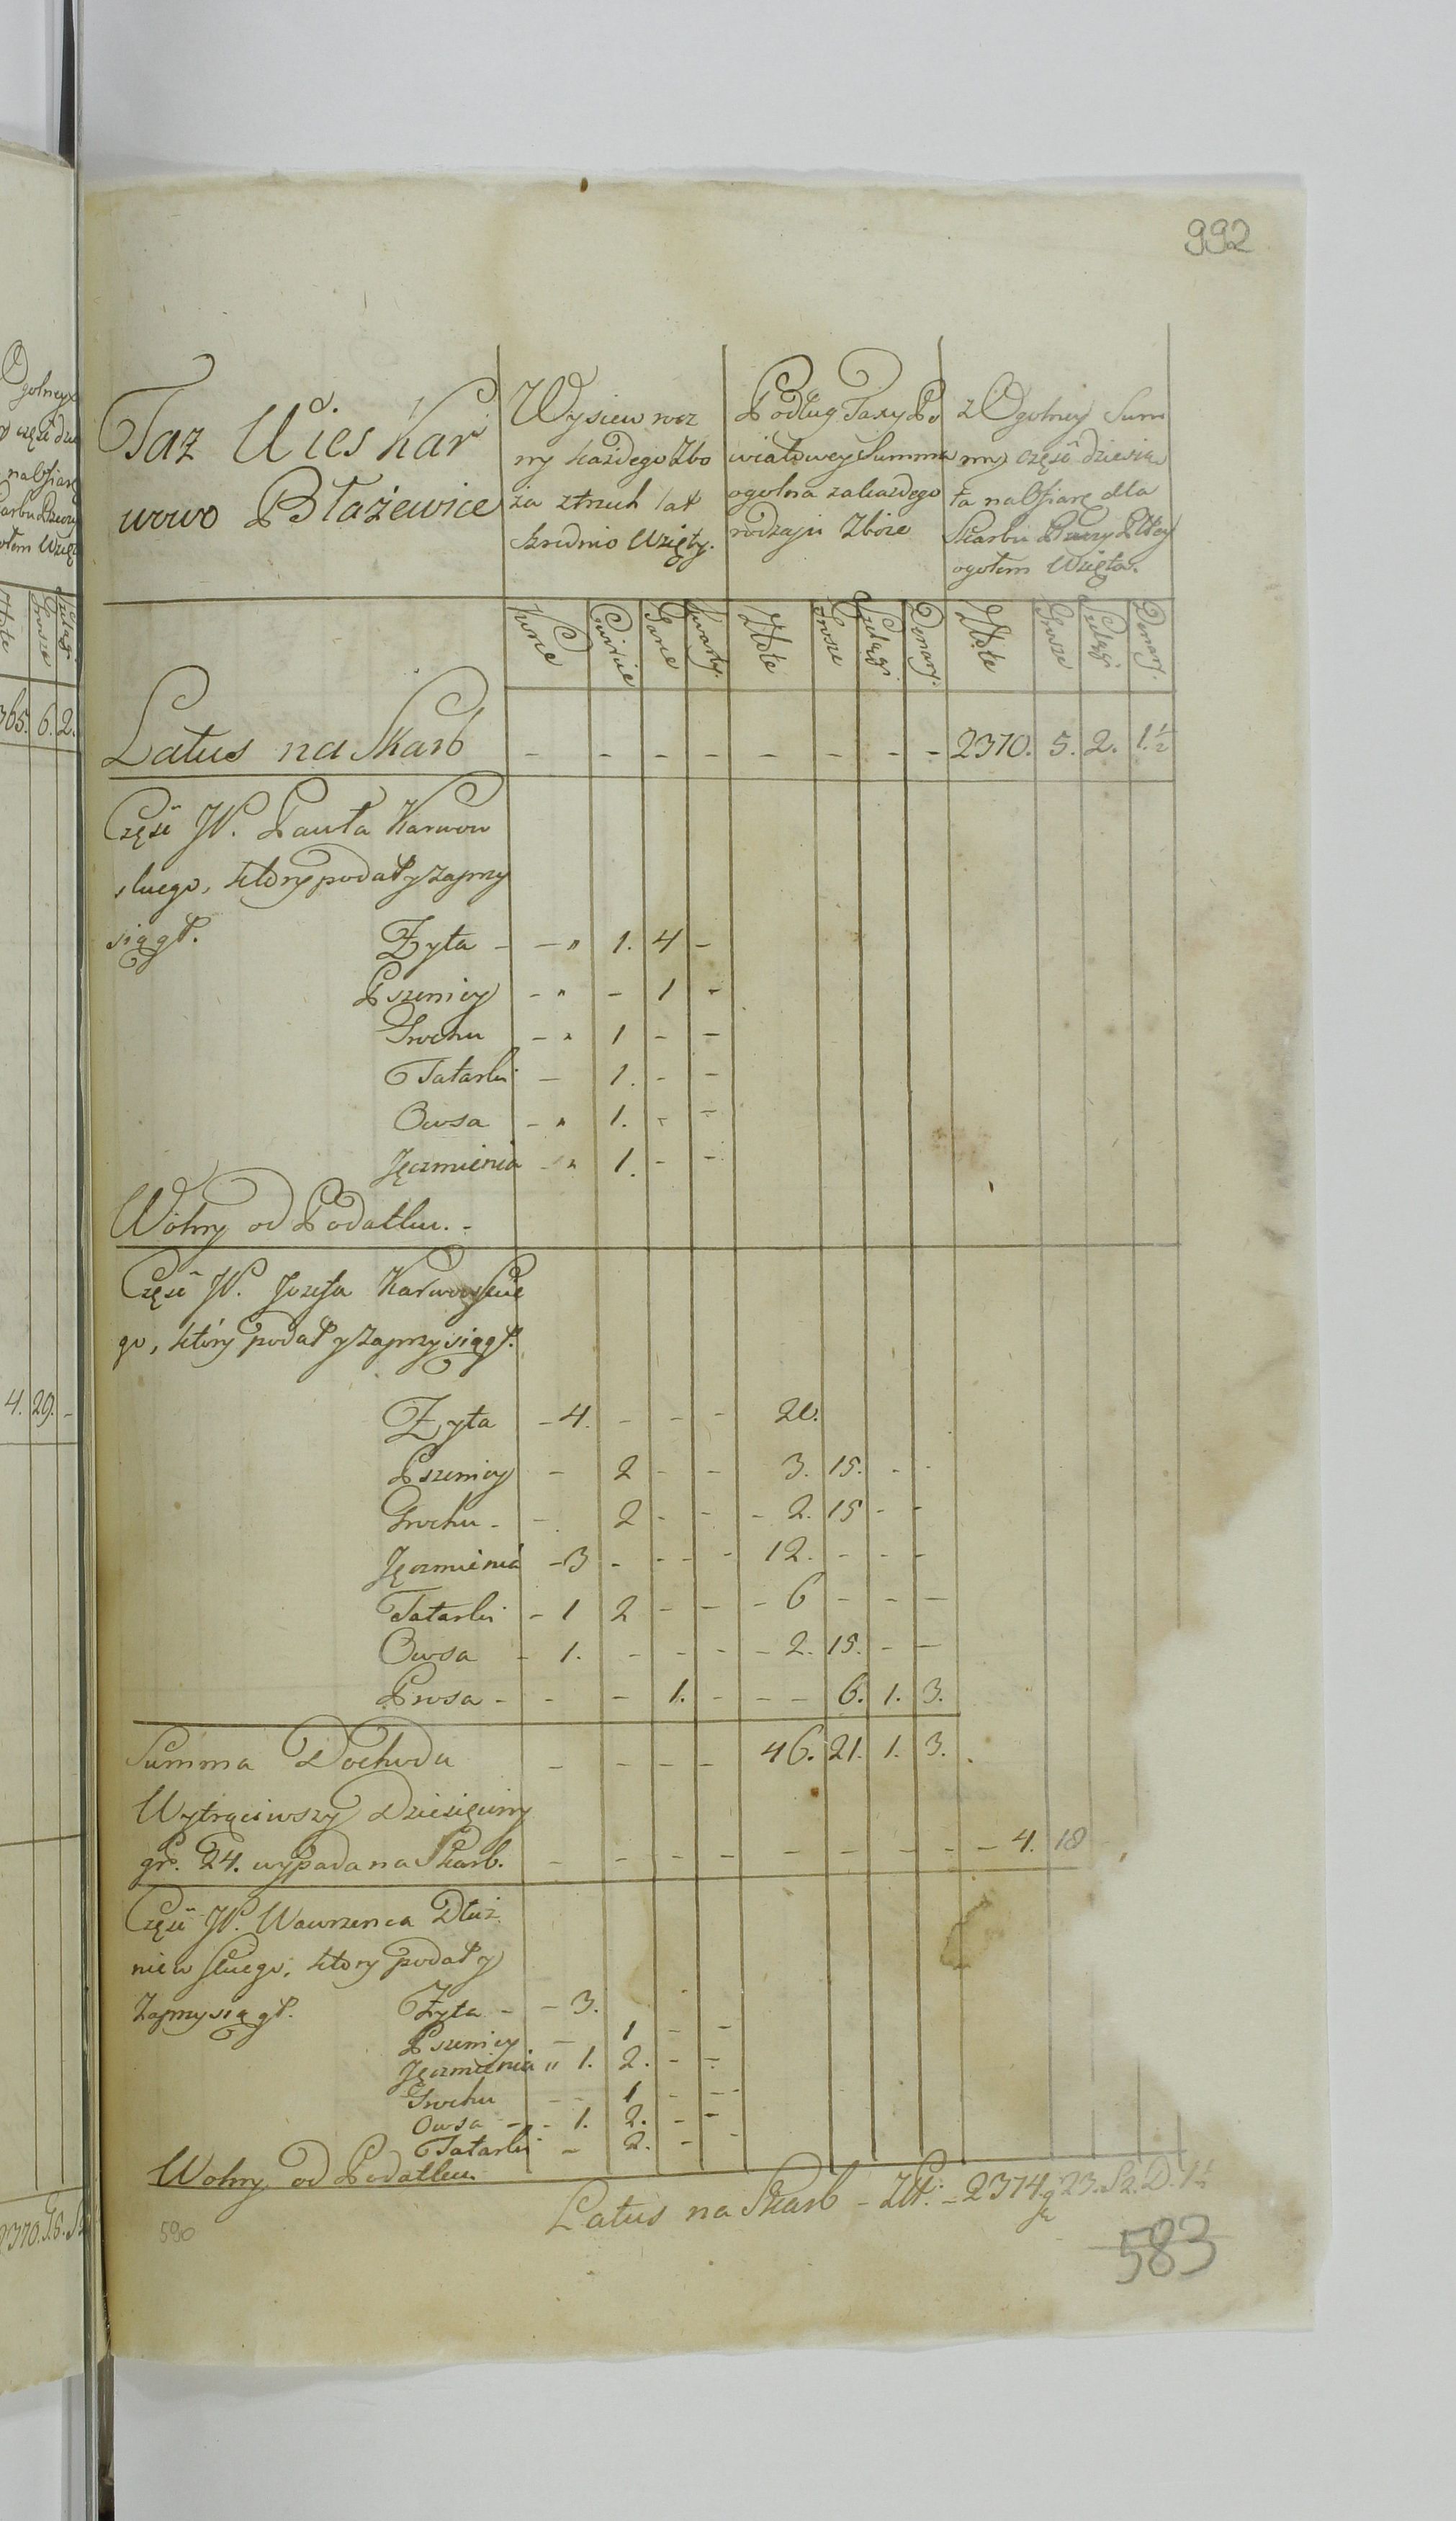 992
Taz Wies Kar
wowo Błażewice
Wysiew rocz
ny każdego Zbo
ża ztrzech lat
szrednio Wzięty.
Podług Taxy Po
wiatowey Summa
ogolna zakażdego
rodzaju Zboże
z Ogolney Sum
my część dziesią
ta na Ofiarę dla
Skarbu Rzeczy Pltey
ogołem Wzięta.
Korce Cwircie Garce Kwarty. Złote Grosze Szelągi Denary. Złote Grosze Szelągi Denary.
Latus na Skarb - - - - - - - - 2370. 5. 2. 1.½
Część JP. Pawła Karwow
skiego, ktory podał y zaprzy
siągł. Żyta - - " 1. 4 -
Pszenicy - " - 1 -
Grochu - " 1 - -
Tatarki - 1. - -
Owsa - " 1. - -
Jęczmienia - " 1. - -
Wolny od Podatku. -
Część JP. Jozefa Karwowskie
go, który podał y zaprzysiągł.
Żyta - 4. - - - 20.
Pszenicy - 2 - - 3. 15. - -
Grochu - - 2 - - - 2. 15 - -
Jęczmienia - 3 - - - - 12. - - -
Tatarki - 1 2 - - - 6 - - -
Owsa - 1. - - - - 2. 15. - -
Prosa - - - 1. - - - 6. 1. 3.
Summa Dochodu - - - - 46. 21. 1. 3.
Wytrąciwszy Dziesięciny
gr. 24. wypada na Skarb. - - - - - - - - - 4. 18
Część JP. Wawrzenca Dłuż
niewskiego, ktory podał y
zaprzysiągł. Żyta - - 3. -
Pszenicy - 1 - -
Jęczmienia " 1. 2. - -
Grochu - - 1 - -
Owsa - - 1. 2. - -
Tatarki - 2. - -
Wolny od Podatku
Latus na Skarb - Złt. - 2374 gr 23. S2. D. 1½
590
583
Ogolney
część dzi
na Ofiarę
Skarbu Rzeczy
ołem Wzię
Złote Grosze Szelągi
365. 6. 2.
4. 29. -
2370. 5.